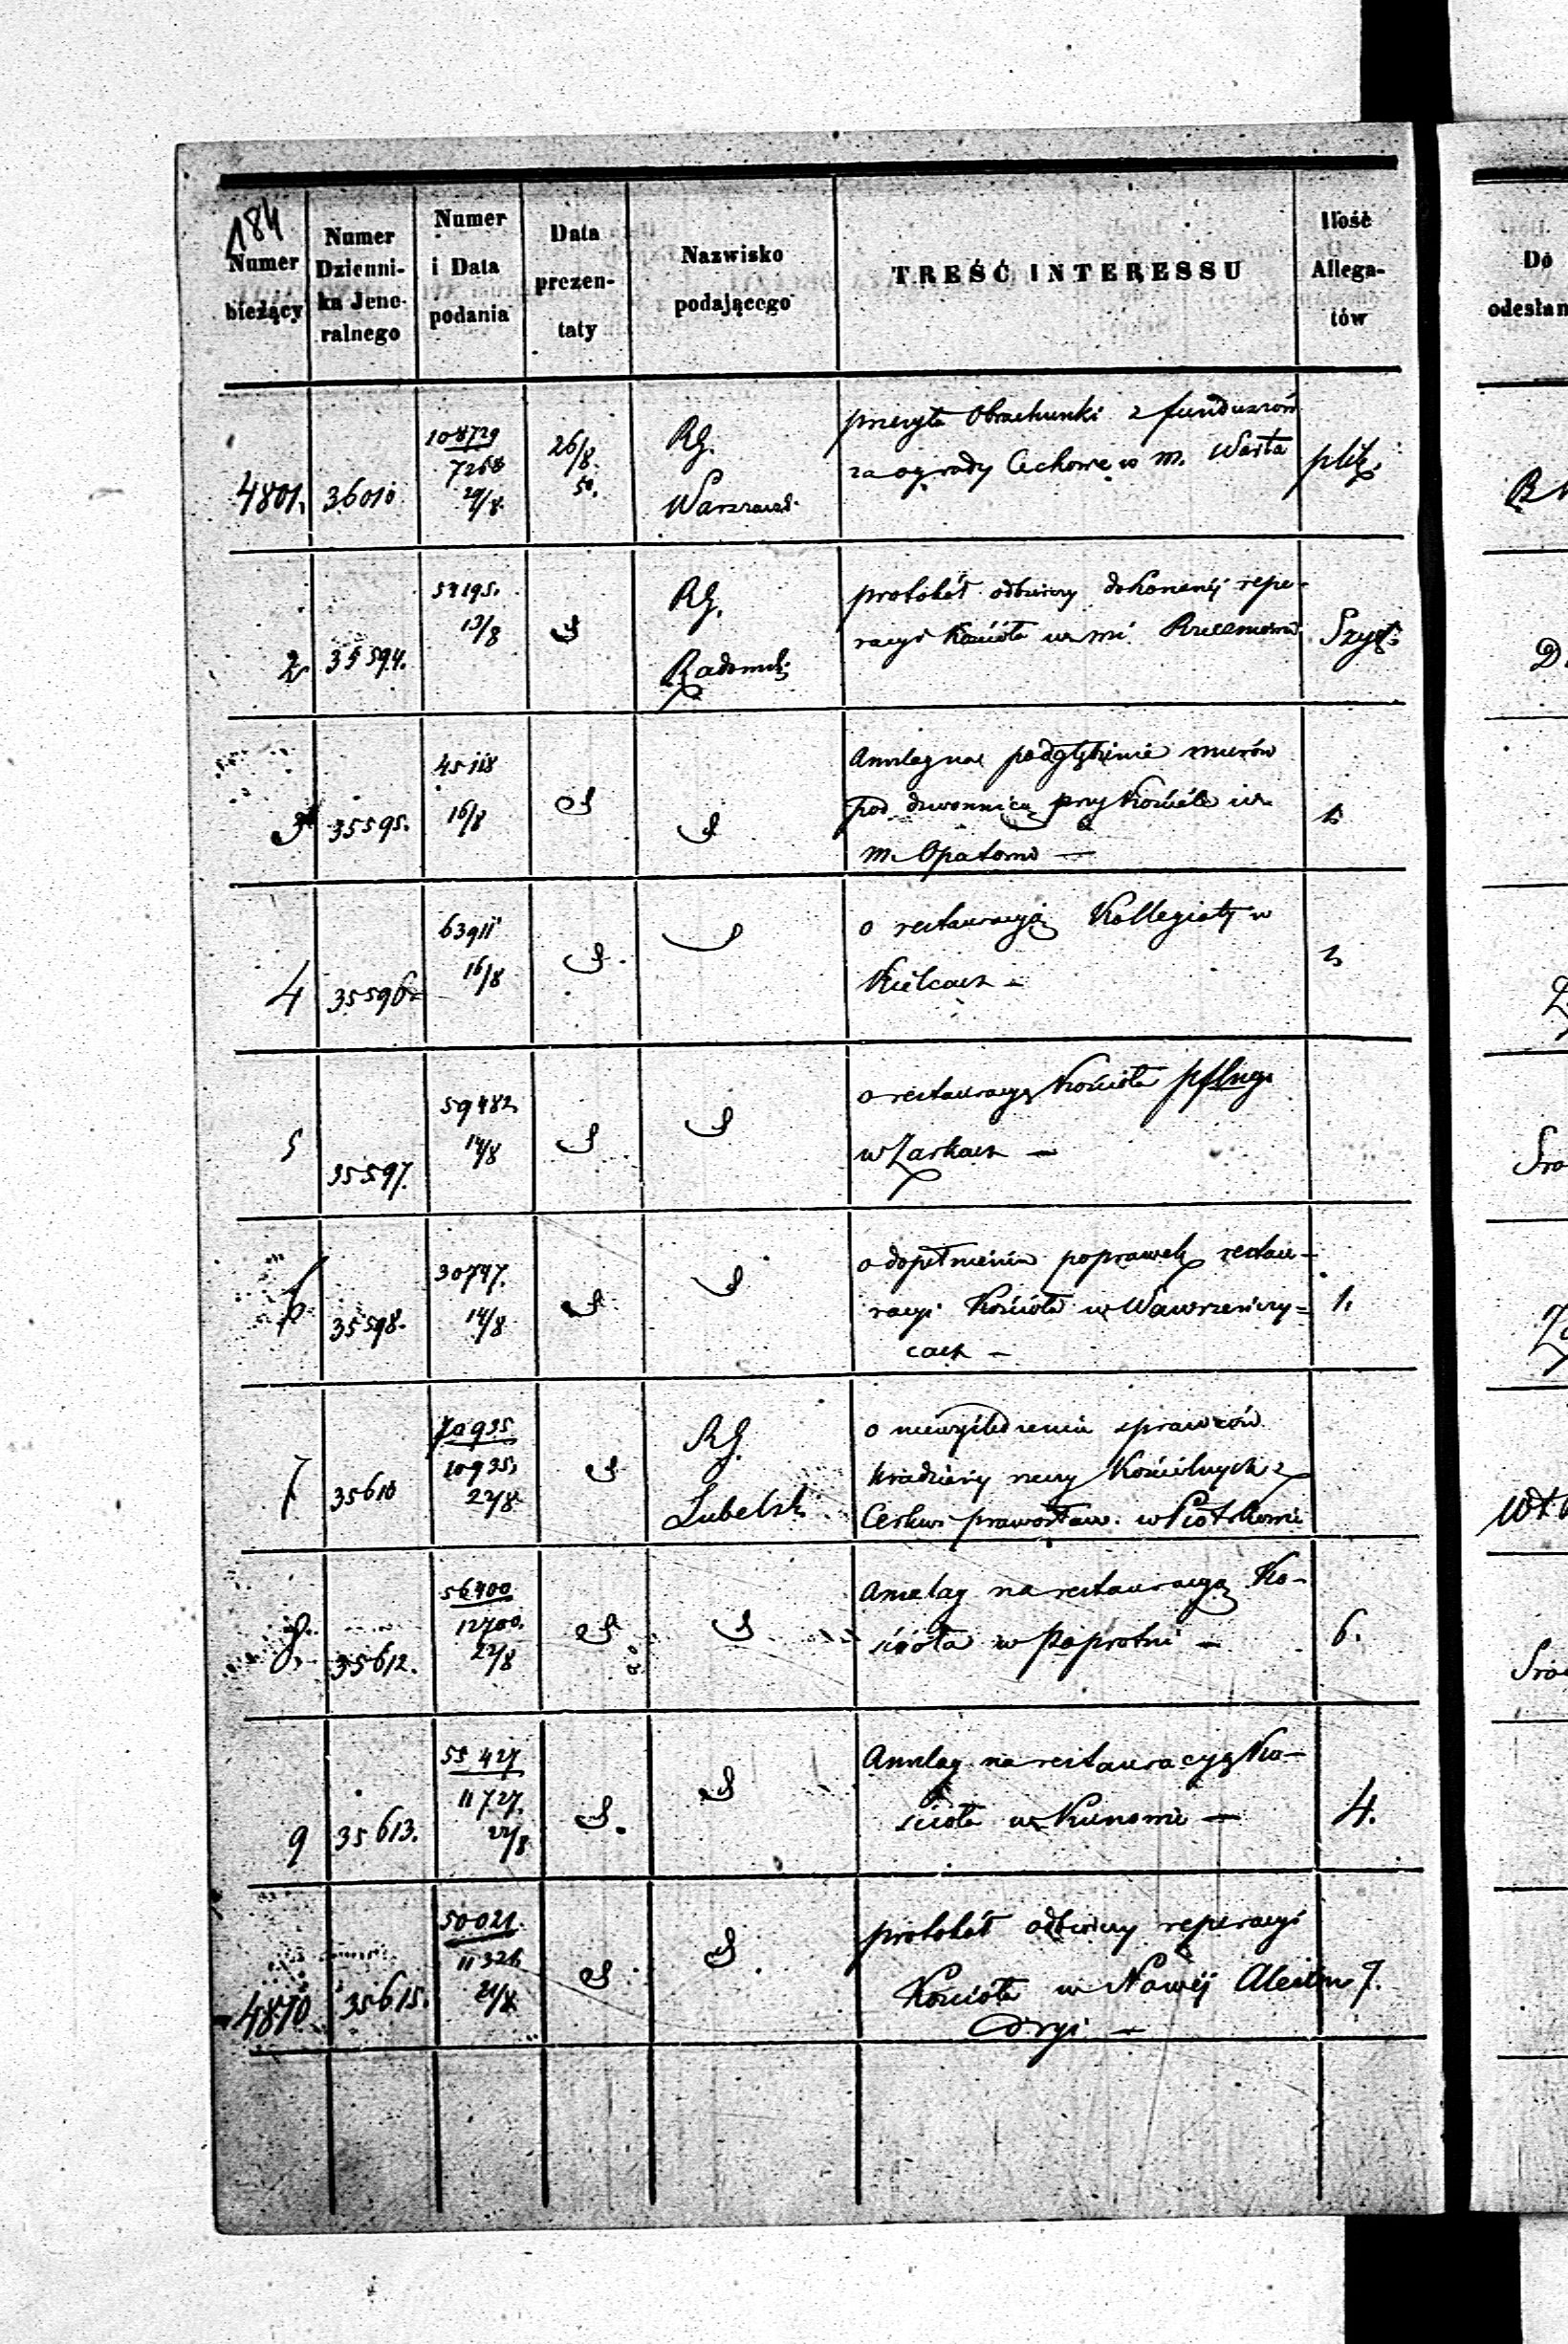 184
Numer
bieżący
Numer
Dzienni-
ka Jene-
ralnego
Numer
i Data
podania
Data
prezen-
taty
Nazwisko
podającego
TREŚĆ INTERESSU
Ilość
Allega-
tów
Do
odesłan
4801. 36010 108729
7268
20/8. 26/8.
50. RG.
Warszaws.
przesyła Obrachunki z funduszów
za ogrody Cechowe w m. Warta
2 35594. 13/8 RG.
Radoms.
protokół odbiorczy dokonanéj repe-
racyi Kościoła w m.
3 35595. 45118
16/8
Anszlag na podgłębienie murów
pod dzwonnicą przy Kościele w
m. Opatowie —
4 35596 63911
16/8
o restauracyą Kollegiaty w
Kielcach —
5 35597. 59482
14/8
o restauracyą Kościoła
w Żarkach —
6 35598. 30747.
14/8
o dopełnieniu poprawek restau-
racyi Kościoła w Wawrzeńczy-
cach —
1.
7 35610 70935
10935
22/8 RG.
Lubelsk.
o niewyśledzeniu sprawców
kradzieży rzeczy Kościelnych z
Cerkwi prawosław. w Piotrkowie
8. 35612. 56400
12700.
22/8
Anszlag na restauracyą Ko-
ścioła w Paprotni —
6.
9 35613. 55427
11727.
22/8
Anszlag na restauracyą Ko-
ścioła w Kunowie —
4.
4810 35615. 50021.
11326
21/8
protokół odbiorczy reperacyi
Kościoła w Nowéj Alexan
dryi —
7.